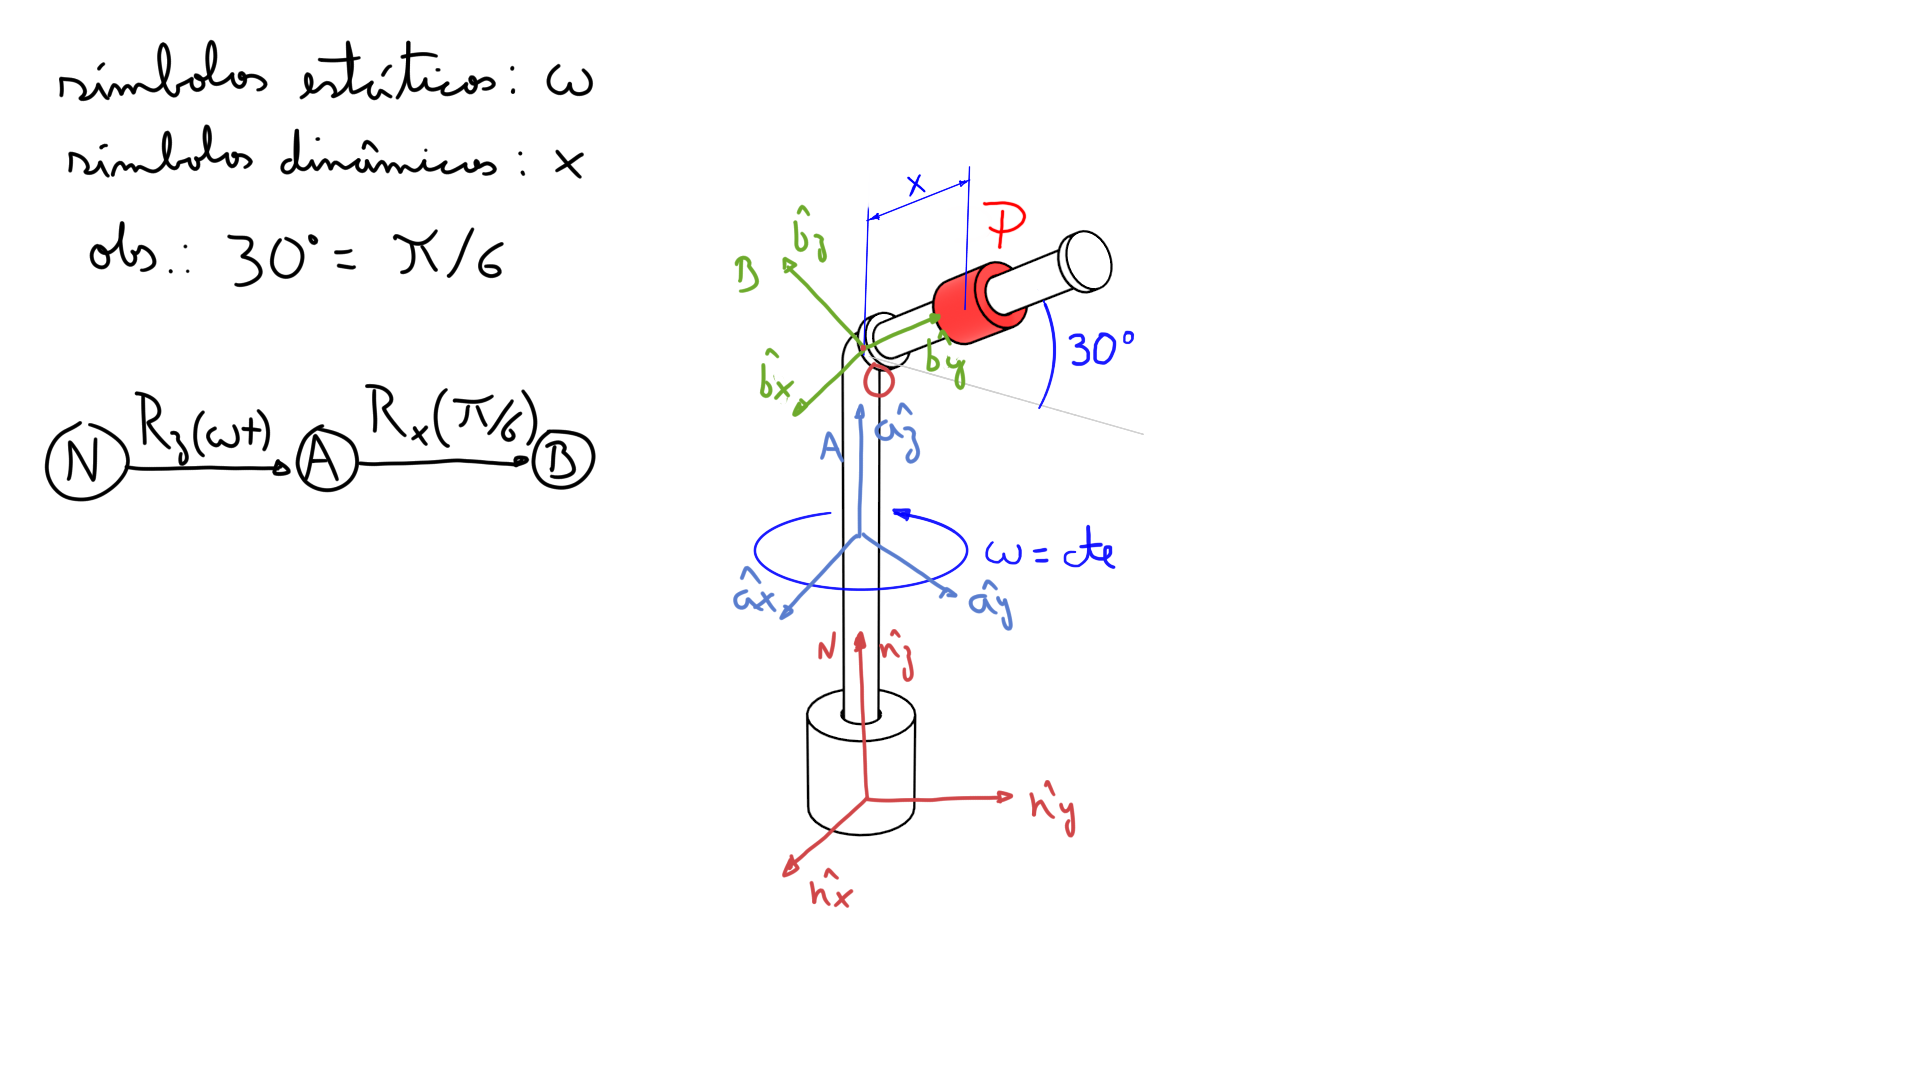 símbolos estáticos: ω
símbolos dinâmicos: x
obs.: 30° = π/6
N Rz(ωt) A Rx(π/6) B
x
P
B b̂z
b̂x
b̂y
30°
O
A âz
âx
ây
ω = cte
N n̂z
n̂y
n̂x